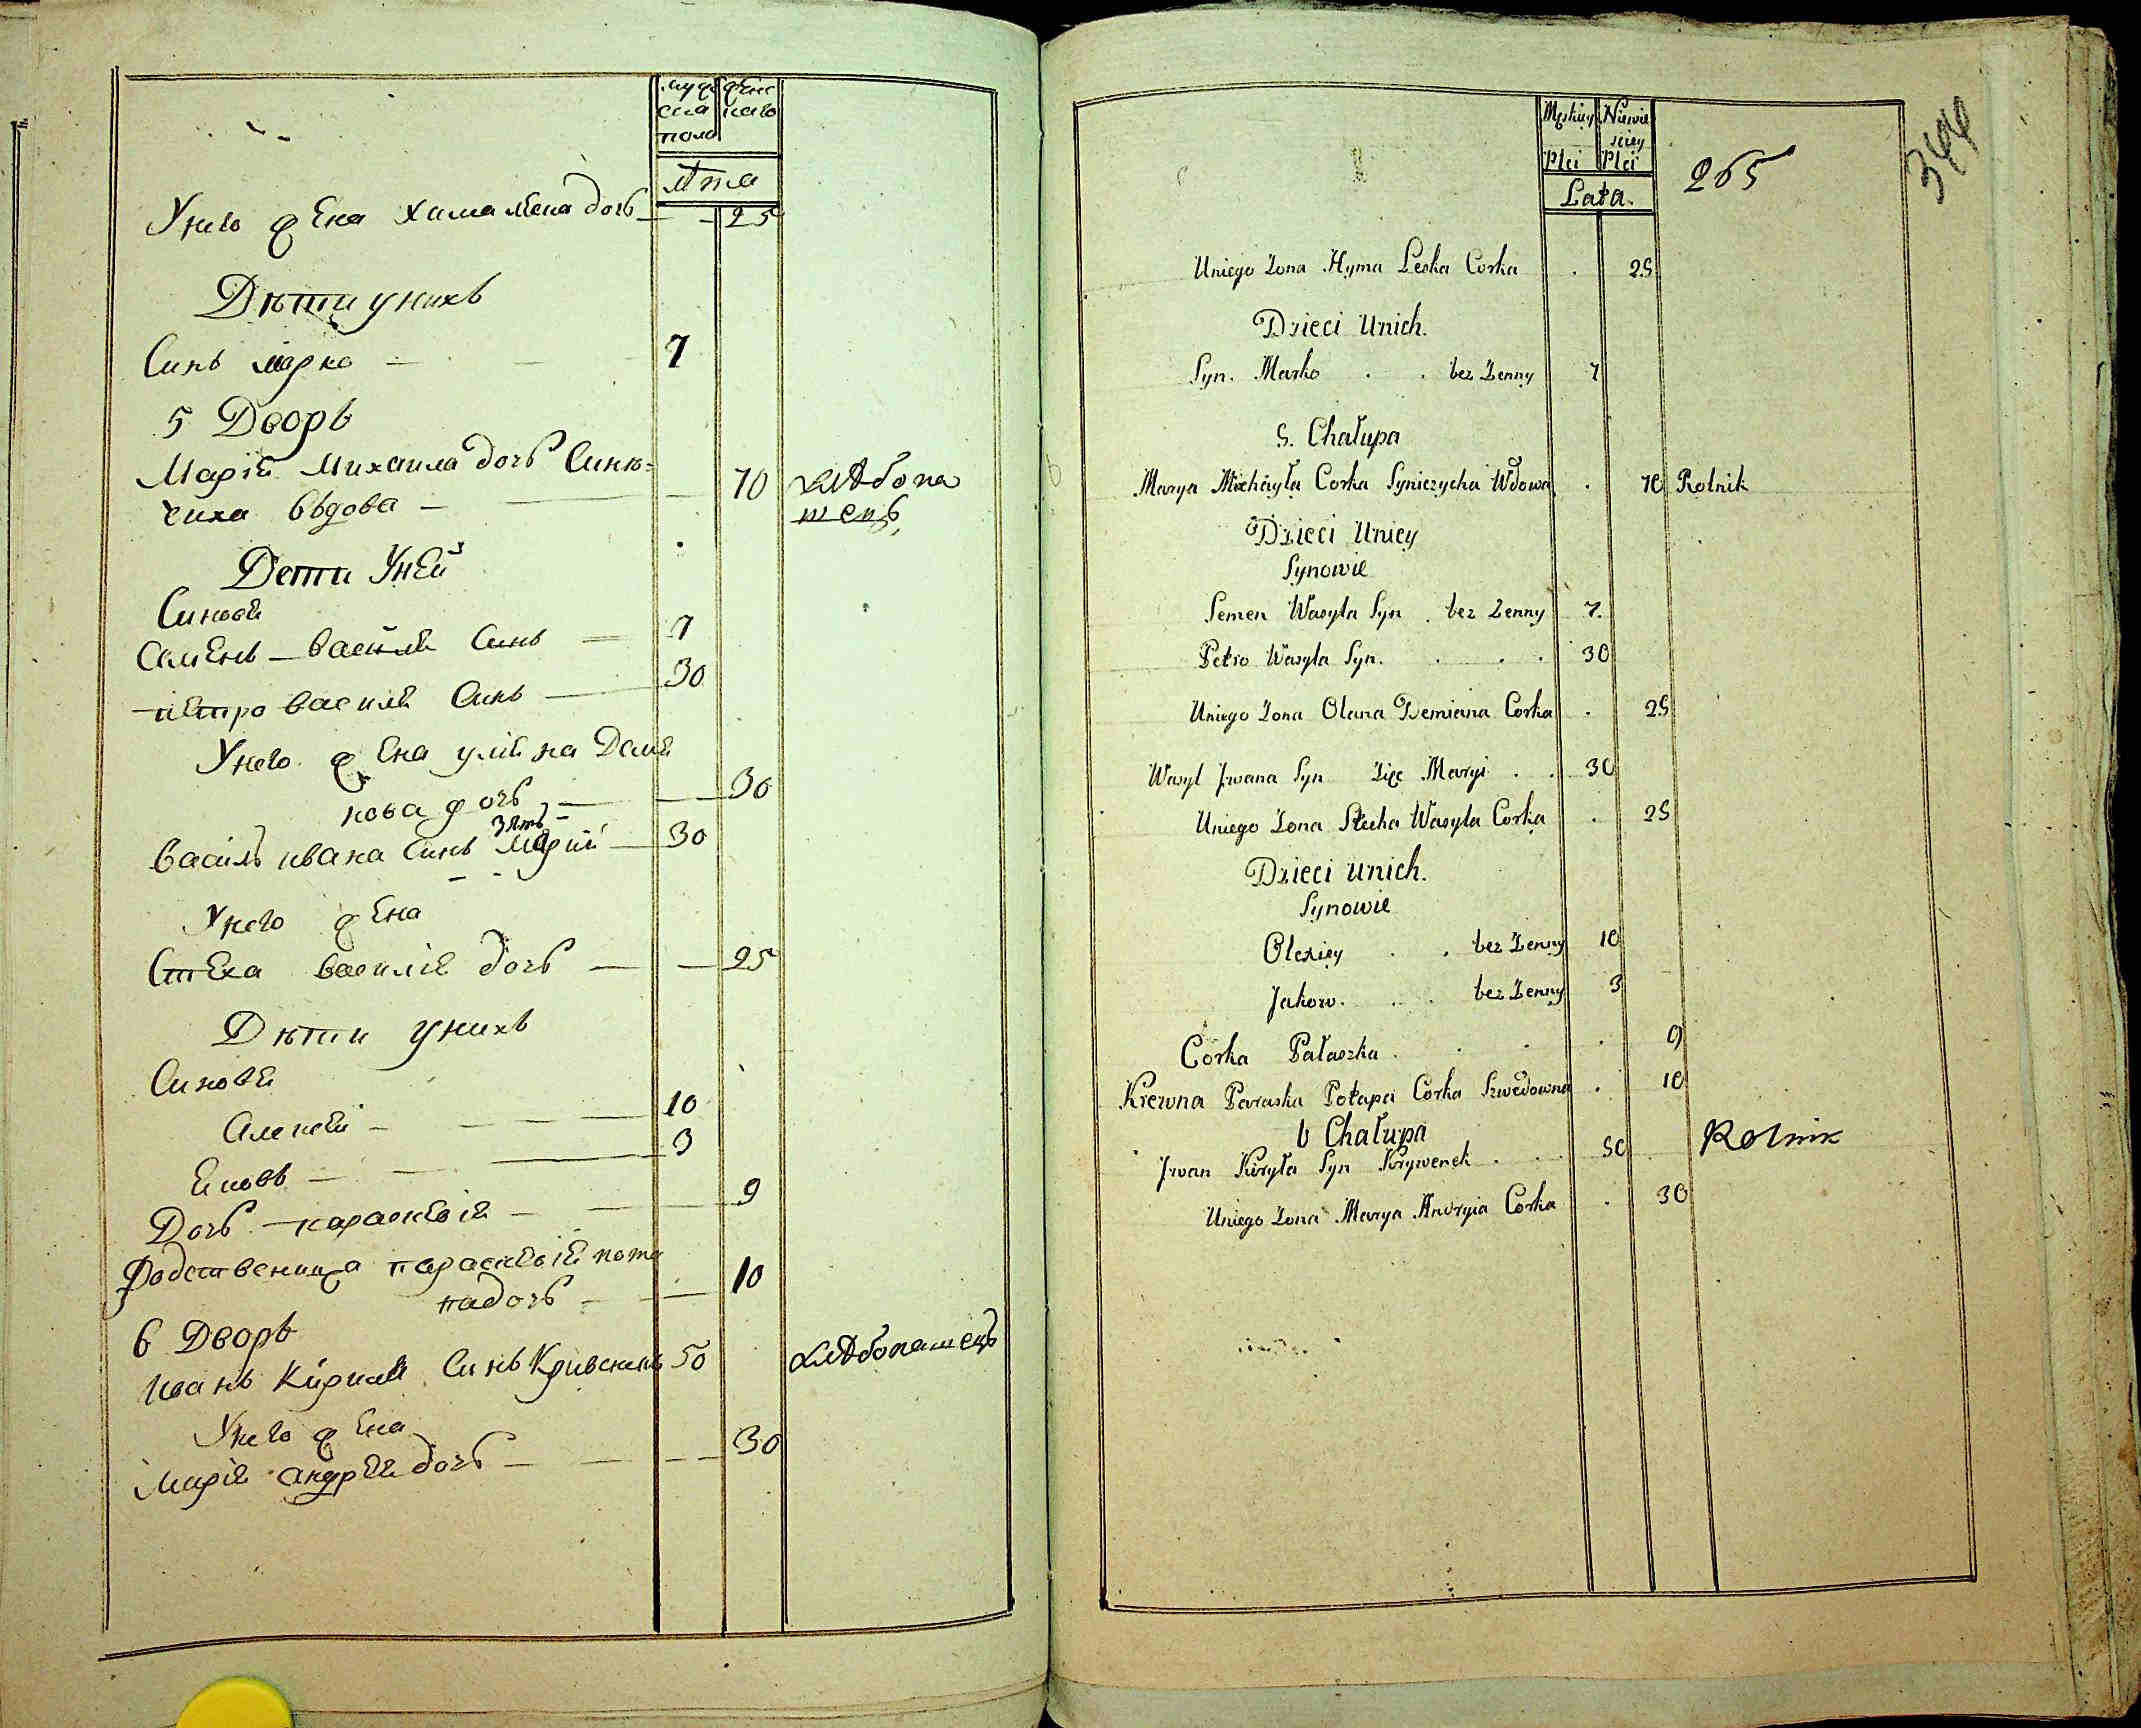 муже
ска
пола
женс
каго
лѣта
Унего жена Хима леска дочь 25
Дѣти унихъ
Синъ Марко 7
5 Дворъ
Марія Михаила дочь Синѣ=
чиха вдова 70 хлѣбопа
шецъ
Дети Уней
Синове
Семенъ василя Синъ 7
петро василя Синъ 30
Унего жена уляна Деми
нова дочь 30
зять
василь ивана Синъ Марии 30
Унего жена
Стеха василя дочь 25
Дѣти унихъ
Синове
Алексей 10
Яковъ 3
Дочь параскевія 9
Родственница параскевія пота
па дочь 10
6 Дворъ
Иванъ Кирила Синъ Кривенокъ 50 хлѣбопашецъ
Унего жена
Марія андрея дочь 30
344
265
Męskiey Plci
Niewie
sciey
Plci
Lata.
Uniego Zona Hyma Leska Corka . 25
Dzieci Unich.
Syn. Marko . . bez Zenny 7
5. Chałupa
Marya Michayła Corka Syniczycha Wdowa . 70 Rolnik
Dzieci Uniey
Synowie
Semen Wasyla Syn . bez Zenny 7.
Petro Wasyla Syn. . . . 30
Uniego Zona Olana Demiana Corka . 25
Wasyl Jwana Syn Zięc Maryi . . 30
Uniego Zona Stecha Wasyla Corka . 25
Dzieci Unich.
Synowie
Olexiey . . bez Zenny 10
Jakow. . . bez Zenny 3
Corka Pałaszka . . . . 9
Krewna Paraska Potapa Corka Szwedowna . 10
6 Chałupa
Jwan Kiryła Syn Krywenek . . . 50 Rolnik
Uniego Zona Marya Andryia Corka . 30